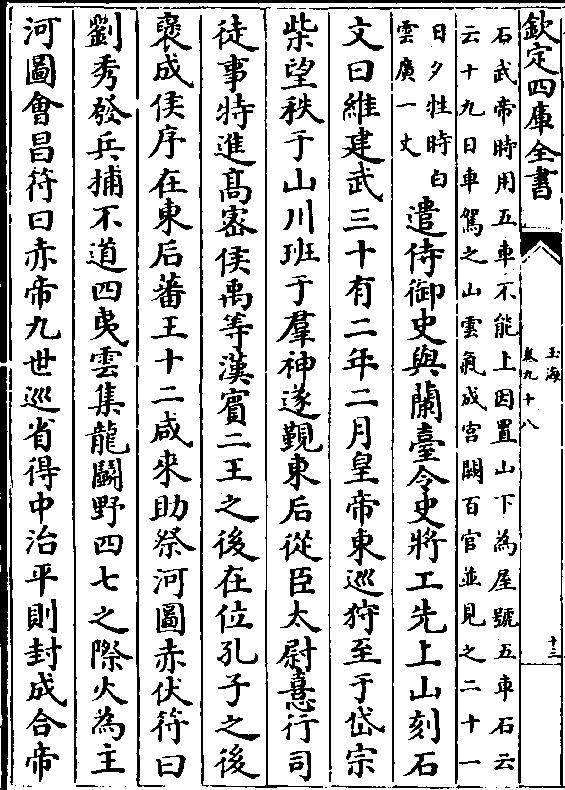 欽定四庫全書
玉海
卷九十八
十三
石武帝時用五車不能上因置山下為屋號五車石云
云十九日車駕之山雲氣成宮闕百官並見之二十一
日夕牲時白
雲廣一丈
遣侍御史與蘭臺令史將工先上山刻石
文曰維建武三十有二年二月皇帝東巡狩至于岱宗
柴望秩于山川班于羣神遂覲東后從臣太尉憙行司
徒事特進髙宻侯禹等漢賓二王之後在位孔子之後
襃成侯序在東后蕃王十二咸來助祭河圖赤伏符曰
劉秀發兵捕不道四夷雲集龍鬭野四七之際火為主
河圖會昌符曰赤帝九世巡省得中治平則封成合帝